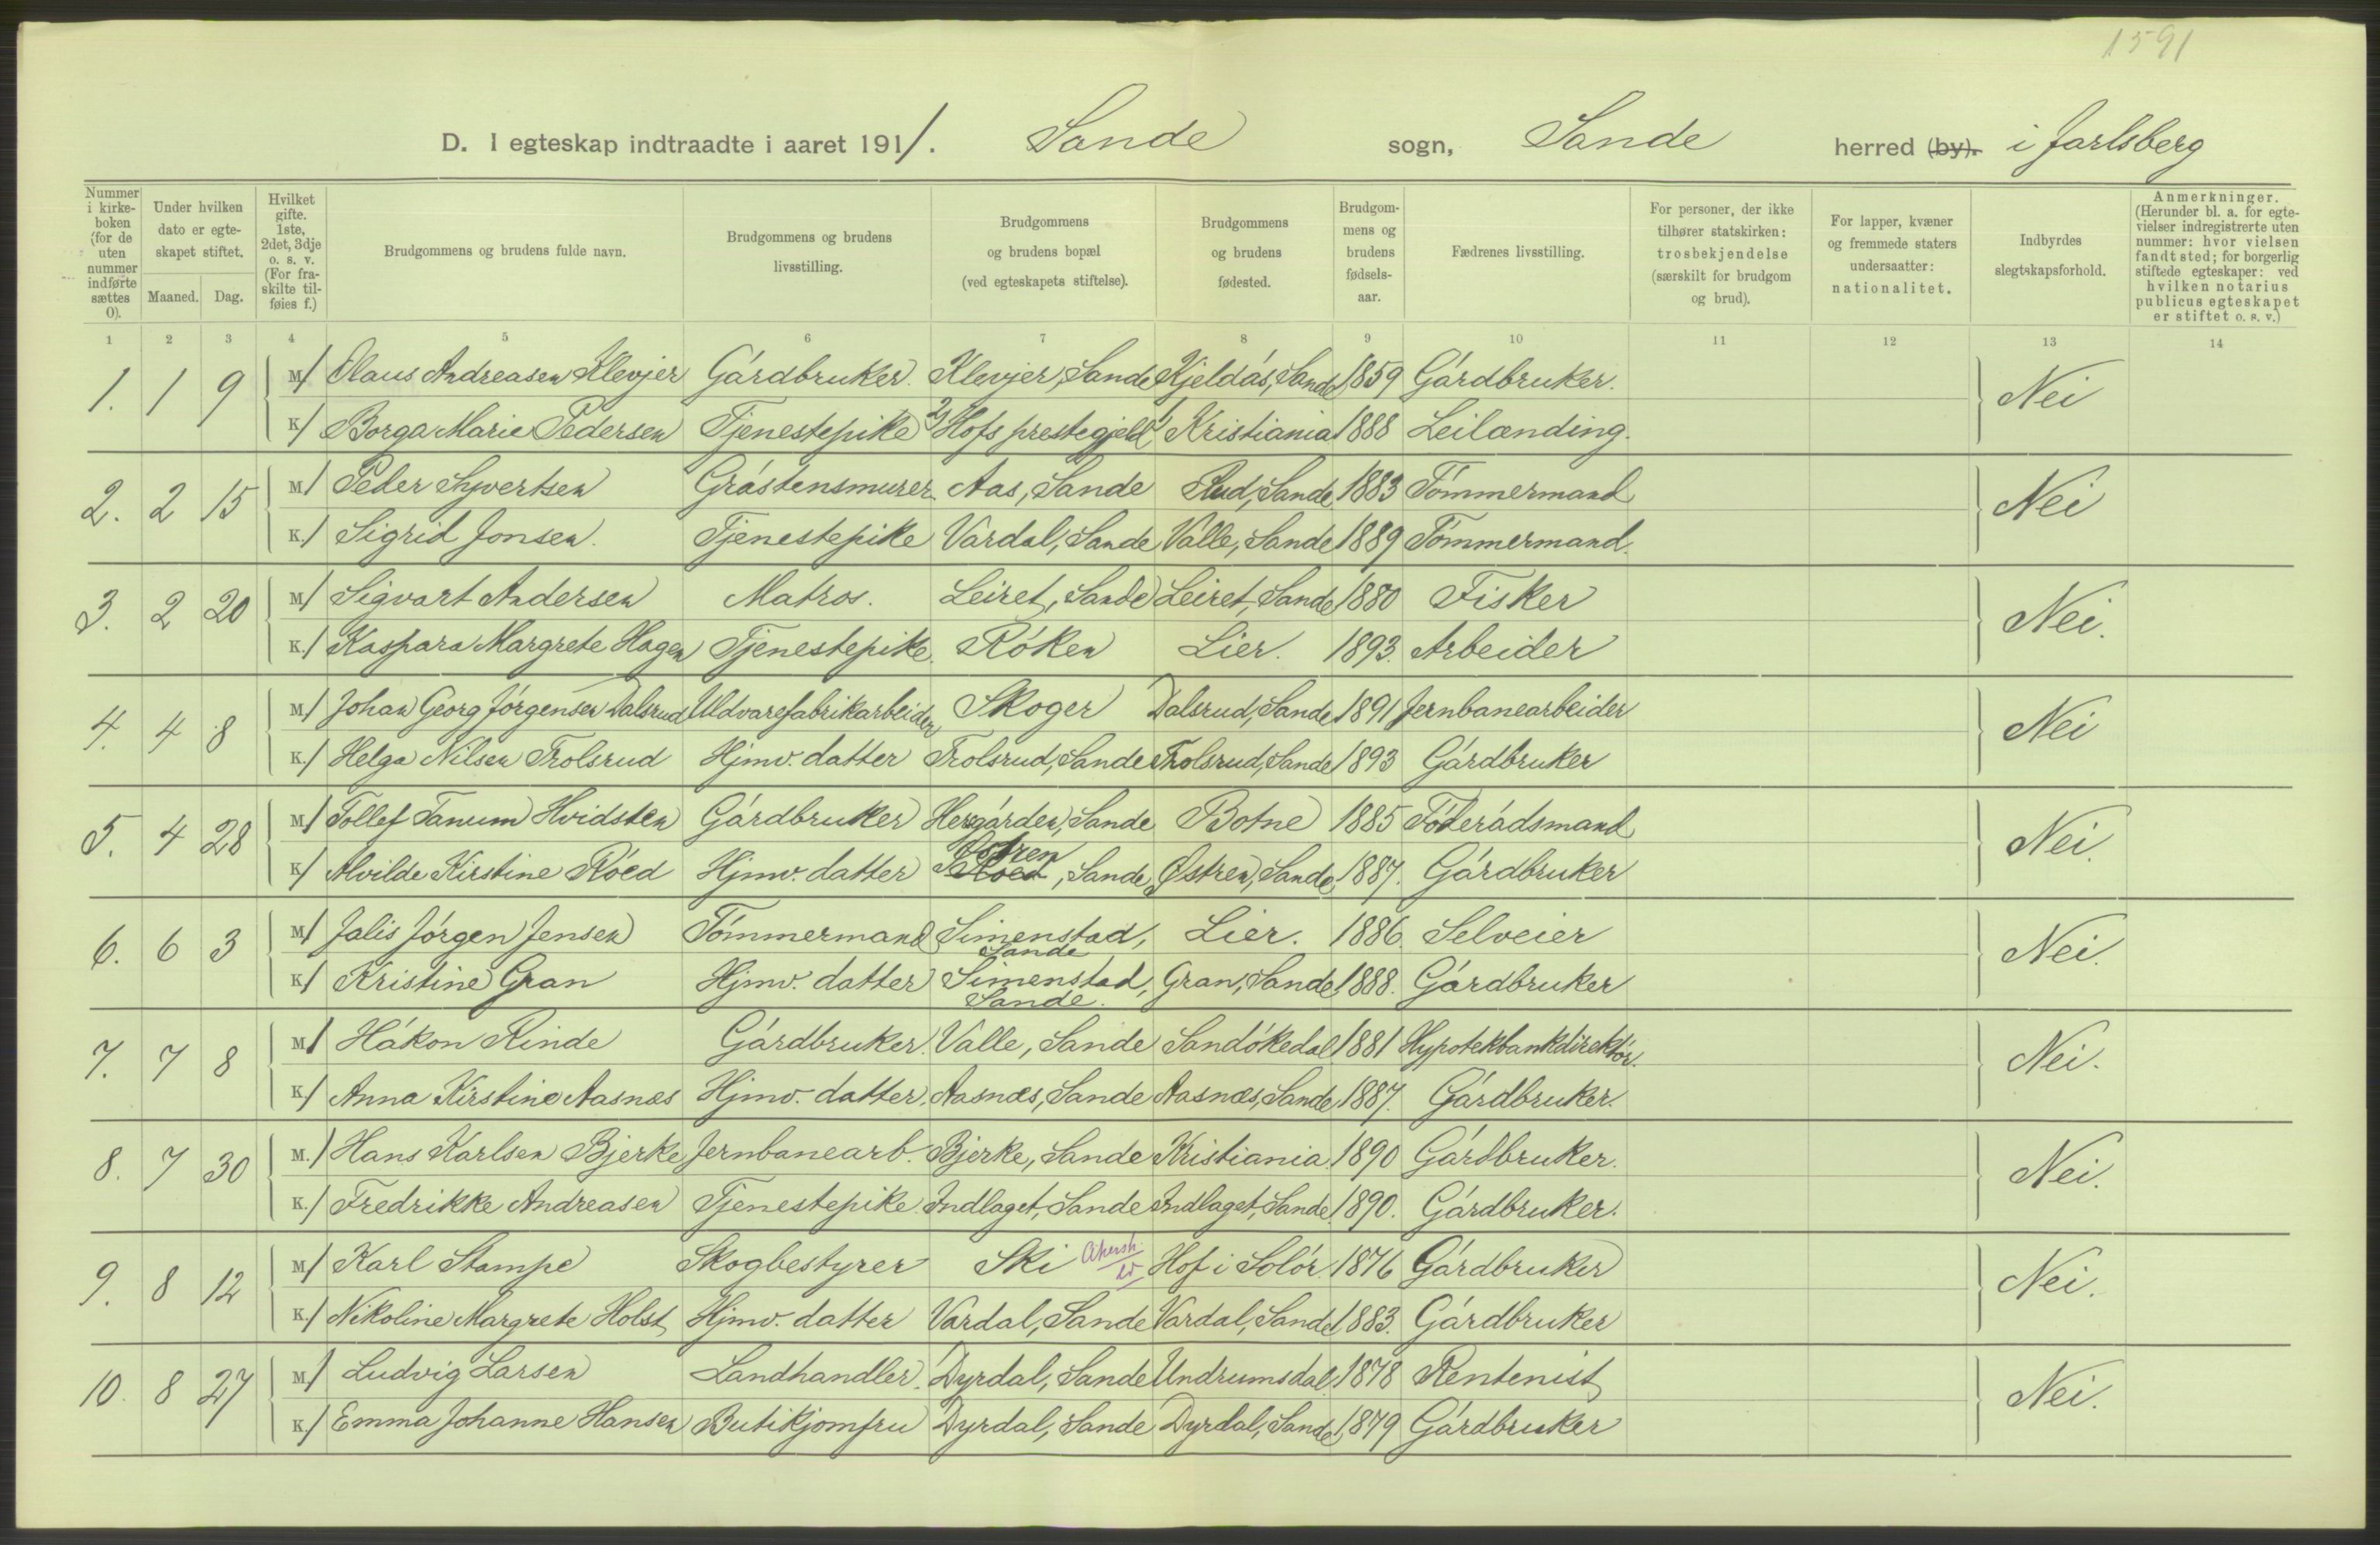 1591
D. I egteskap indtraadte i aaret 1911. Sande sogn, Sande herred (by). i Jarlsberg
Nummer i kirke-boken (for de uten nummer indførte sættes 0).
Under hvilken dato er egte-skapet stiftet.
Maaned. Dag.
Hvilket gifte. 1ste, 2det, 3dje o. s. v. (For fra-skilte til-føies f.)
Brudgommens og brudens fulde navn.
Brudgommens og brudens livsstilling.
Brudgommens og brudens bopæl (ved egteskapets stiftelse).
Brudgommens og brudens fødested.
Brudgom-mens og brudens fødsels-aar.
Fædrenes livsstilling.
For personer, der ikke tilhører statskirken: trosbekjendelse (særskilt for brudgom og brud).
For lapper, kvæner og fremmede staters undersaatter: nationalitet.
Indbyrdes slegtskapsforhold.
Anmerkninger. (Herunder bl. a. for egte-vielser indregistrerte uten nummer: hvor vielsen fandt sted; for borgerlig stiftede egteskaper: ved hvilken notarius publicus egteskapet er stiftet o. s. v.)
1 2 3 4 5 6 7 8 9 10 11 12 13 14
1. 1 9 M/ Olaus Andreasen Klevjer Gárdbruker. Klevjer, Sande Kjeldás, Sande 1859 Gárdbruker. Nei
K/ Borga Marie Pedersen Tjenestepike Hofs prestegjeld Kristiania 1888 Leilænding.
2. 2 15 M/ Peder Syvertsen Gråstensmurer Aas, Sande Rud, Sande 1883 Tómmermand Nei
K./ Sigrid Jonsen. Tjenestepike Vardal, Sande Valle, Sande 1889 Tómmermand.
3. 2 20 M/ Sigvart Andersen Matros. Leiret, Sande Leiret, Sande 1880 Fisker Nei.
K./ Kaspara Margrete Hagen Tjenestepike. Róken Lier. 1893. Arbeider
4. 4 8 M/ Johan Georg Jórgensen Dalsrud Uldvarefabrikarbeider Skoger Dalsrud, Sande 1891 Jernbanearbeider Nei
K./ Helga Nilsen Trolsrud Hjmv. datter Trolsrud, Sande Trolsrud, Sande 1893 Gárdbruker
5. 4 28 M/ Tollef Tanum Hvidsten Gárdbruker Hergården, Sande Botne 1885 Fóderádsmand Nei.
K/ Alvilde Kirstine Róed Hjmv. datter Østren, Sande Østren, Sande 1887. Gárdbruker
6. 6 3 M/ Jalis Jórgen Jensen Tómmermand Simenstad, Sande Lier. 1886. Selveier Nei.
K/ Kristine Gran Hjmv. datter Simenstad, Sande. Gran, Sande 1888. Gárdbruker
7. 7 8 M/ Hákon Rinde Gárdbruker. Valle, Sande Sandókedal 1881 Hypotekbankdirektór. Nei.
K/ Anna Kirstine Aasnæs Hjmv. datter. Aasnæs, Sande Aasnæs, Sande 1887. Gárdbruker.
8. 7 30 M./ Hans Karlsen Bjerke Jernbanearb. Bjerke, Sande Kristiania. 1890 Gárdbruker. Nei.
K./ Fredrikke Andreasen Tjenestepike. Indlaget, Sande Indlaget, Sande. 1890. Gárdbruker.
9. 8 12 M/ Karl Stampe Skogbestyrer Ski Akersh. Hof i Solór. 1876 Gárdbruker Nei.
K./ Nikoline Margrete Holst Hjmv. datter Vardal, Sande Vardal, Sande 1883. Gárdbruker
10. 8 27 M/ Ludvig Larsen Landhandler. Dyrdal, Sande Undrumsdal. 1878 Rentenist Nei.
K/ Emma Johanne Hansen Butikjomfru Dyrdal, Sande Dyrdal, Sande 1879 Gárdbruker